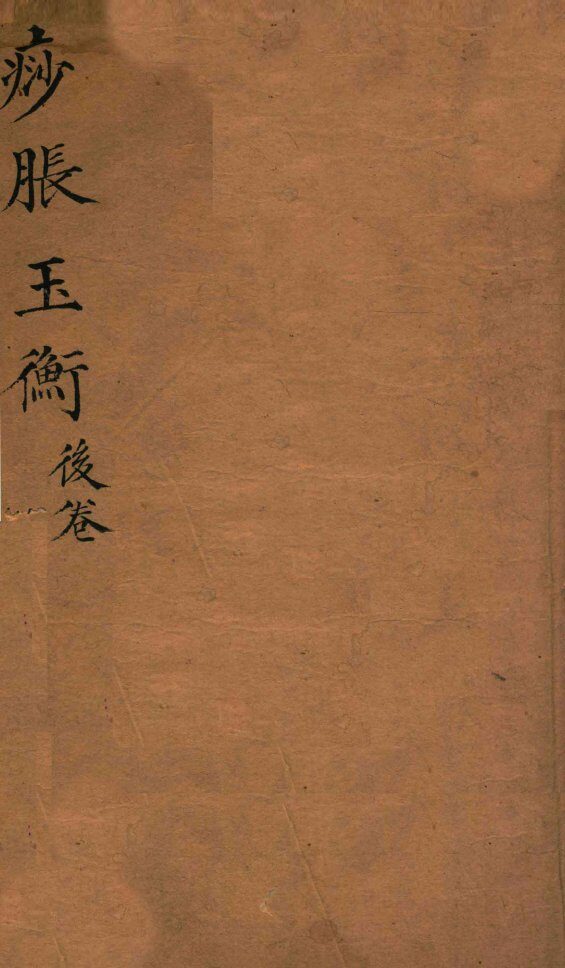 痧脹玉衡
後卷